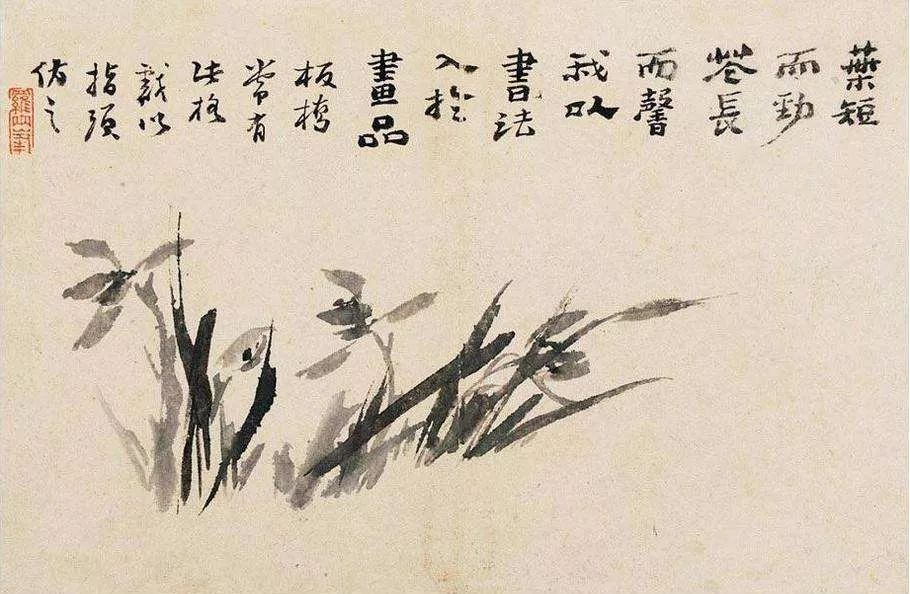 葉短
而勁
花長
而馨
我以
書法
入於
畫品
板橋
常有
此格
戲以
指頭
仿之